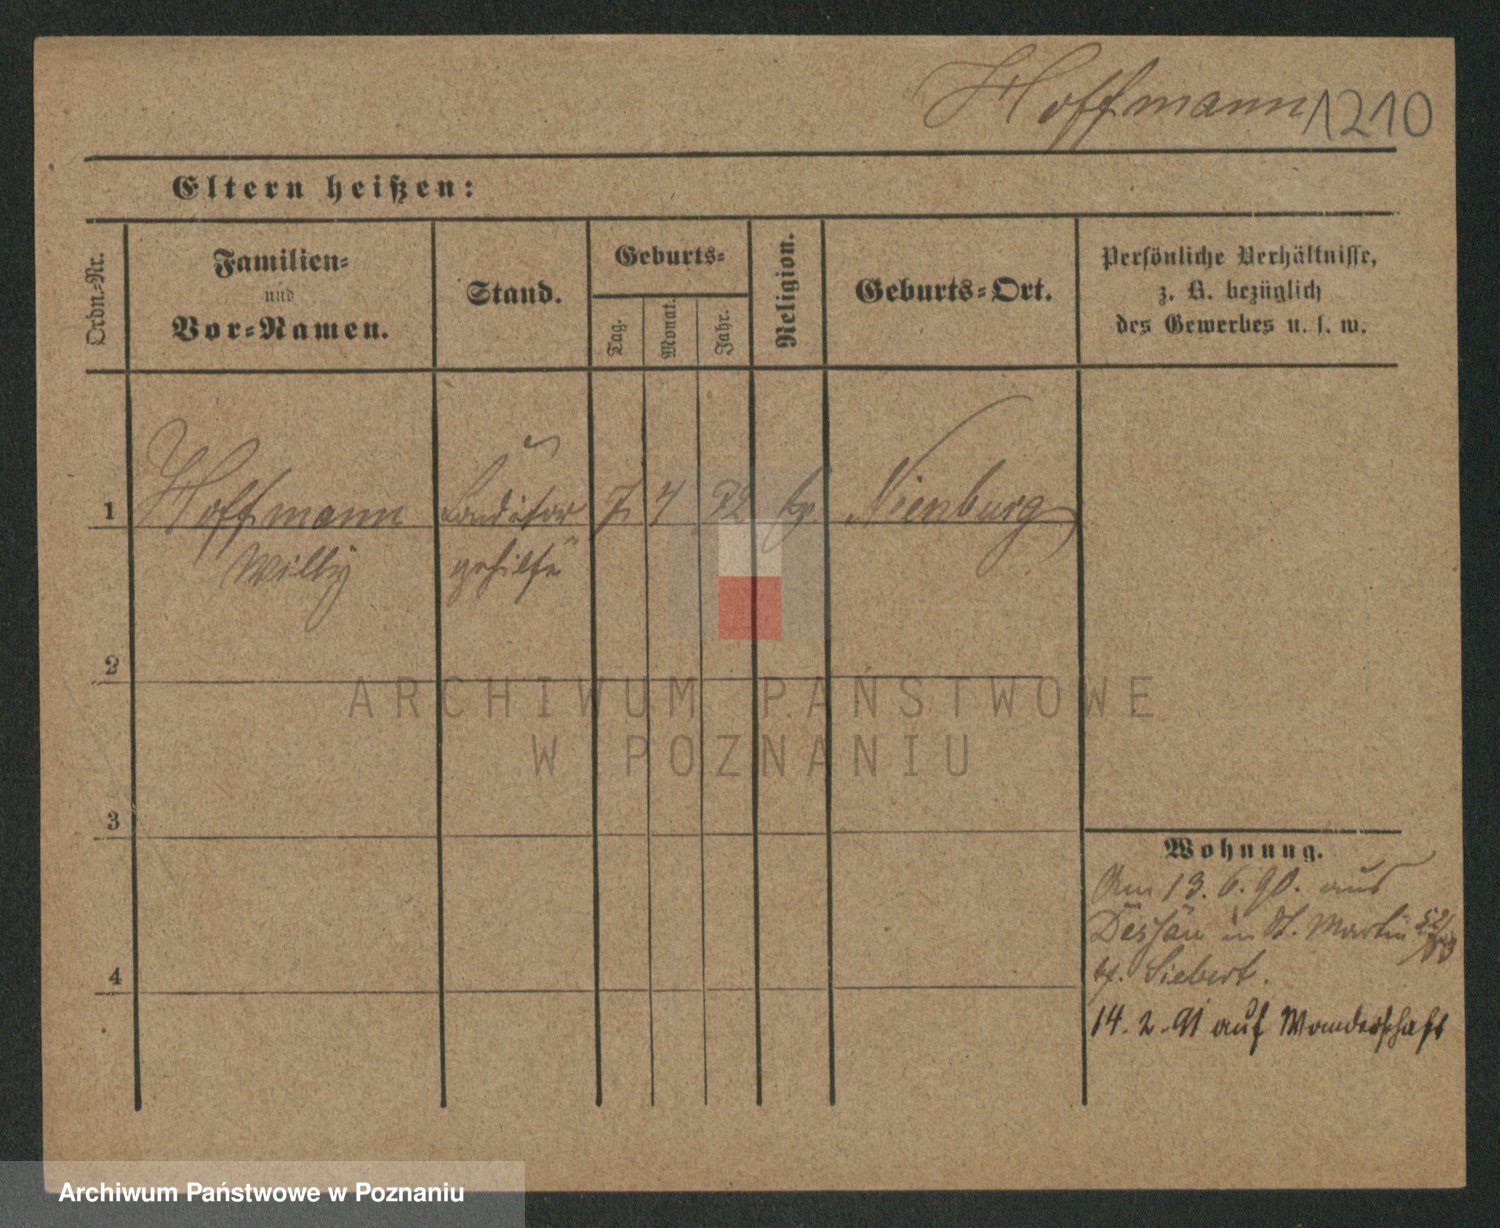 Hoffmann 1210
Eltern heißen:
Ordn.-Nr.
Familien-
und
Vor-Namen.
Stand.
Geburts-
Tag.
Monat.
Jahr.
Religion.
Geburts-Ort.
Persönliche Verhältnisse,
z. B. bezüglich
des Gewerbes u. s. w.
1 Hoffmann Conditor 7 4 72 Nienburg
Willy gehilfe
2
3
4
Wohnung.
Am 13.6.90. aus
Dessau in St. Martin 52/
b/. Siebert.
14.2.91 auf Wanderschaft
ARCHIWUM PAŃSTWOWE
W POZNANIU
Archiwum Państwowe w Poznaniu